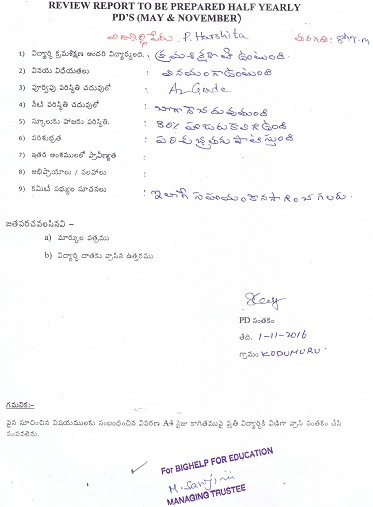 REVIEW REPORT TO BE PREPARED HALF YEARLY
PD'S (MAY & NOVEMBER)
విద్యార్థి పేరు : P. Harshita తరగతి : 8th
1) విద్యార్థి క్రమశిక్షణ అందరి విద్యార్థులది. : క్రమశిక్షణతో ఉంటుంది.
2) వినయ విధేయతలు : వినయంగా ఉంటుంది
3) పూర్వపు పరిస్థితి చదువులో : A2 Grade
4) నేటి పరిస్థితి చదువులో : బాగా చదువుతుంది
5) స్కూలుకు హాజరు పరిస్థితి. : 80% హాజరు కలిగి ఉంది
6) పరిశుభ్రత : పరిశుభ్రతను పాటిస్తుంది
7) ఇతర అంశములలో ప్రావీణ్యత :
8) అభిప్రాయాలు / సలహాలు :
9) కమిటీ సభ్యుల సూచనలు : ఇలాగే సహాయం కొనసాగించగలరు.
జతపరచవలసినవి –
a) మార్కుల పత్రము
b) విద్యార్థి దాతకు వ్రాసిన ఉత్తరము
PD సంతకం
తేది. 1-11-2016
గ్రామం KODUMURU.
గమనిక:-
పైన సూచించిన విషయములకు సంబంధించిన వివరణ A4 సైజు కాగితముపై ప్రతి విద్యార్థికి విడిగా వ్రాసి సంతకం చేసి
పంపవలెను.
For BIGHELP FOR EDUCATION
MANAGING TRUSTEE